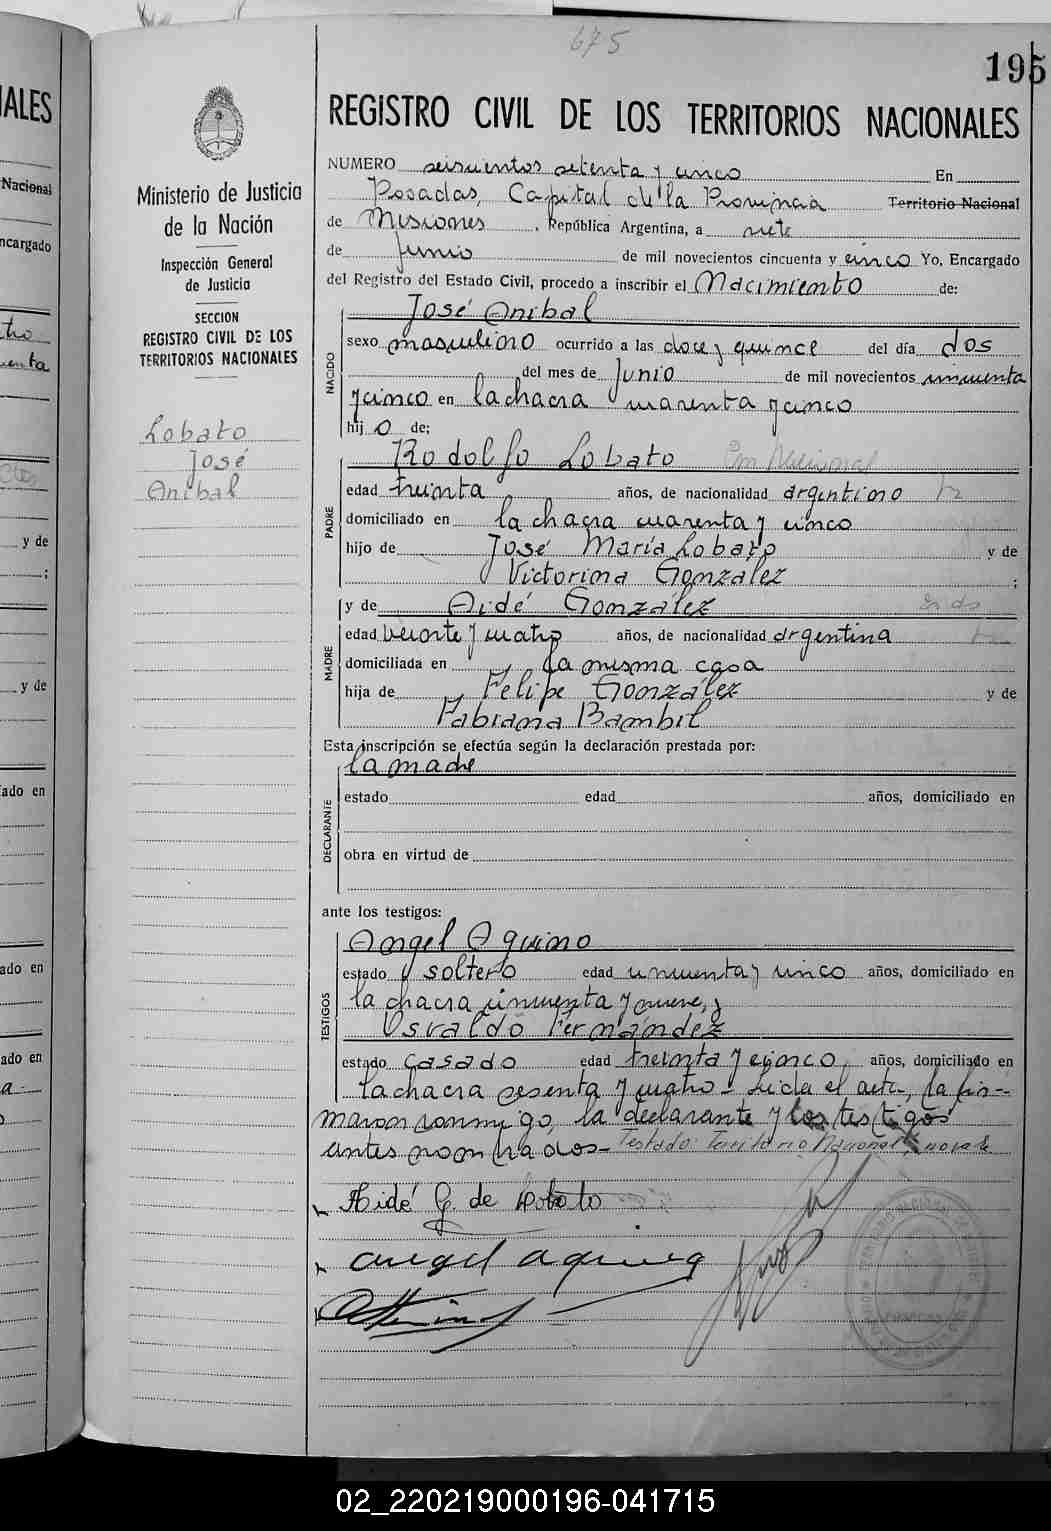 675
195
IALES
REGISTRO CIVIL DE LOS TERRITORIOS NACIONALES
Nacional
ncargado
Ministerio de Justicia
de la Nación
Inspección General
de Justicia
SECCION
REGISTRO CIVIL DE LOS
TERRITORIOS NACIONALES
Lobato
José
Anibal
NUMERO seiscientos setenta y cinco En
Posadas, Capital de la Provincia Territorio Nacional
de Misiones, República Argentina, a siete
de Junio de mil novecientos cincuenta y cinco Yo, Encargado
del Registro del Estado Civil, procedo a inscribir el Nacimiento de:
José Anibal
NACIDO
sexo masculino ocurrido a las doce y quince del día dos
del mes de Junio de mil novecientos cincuenta
y cinco en la chacra cuarenta y cinco
hijo de:
Rodolfo Lobato
PADRE
edad treinta años, de nacionalidad argentino
domiciliado en la chacra cuarenta y cinco
hijo de José María Lobato y de
Victorina González ;
y de Aidé González
MADRE
edad veinte y cuatro años, de nacionalidad argentina
domiciliada en la misma casa
hija de Felipe González y de
Fabiana Bambil
Esta inscripción se efectúa según la declaración prestada por:
la madre
DECLARANTE
estado edad años, domiciliado en
obra en virtud de
ante los testigos:
Angel Aquino
TESTIGOS
estado soltero edad cincuenta y cinco años, domiciliado en
la chacra cincuenta y nueve, y
Osvaldo Fernández
estado casado edad treinta y cinco años, domiciliado en
la chacra sesenta y cuatro - Leida el acta, la fir-
maron conmigo, la declarante y los testigos
antes nombrados - Testado: Territorio Nacional, no vale
Aidé G. de Lobato
angel aquino
y de
;
y de
ado en
ado en
ado en
02_220219000196-041715